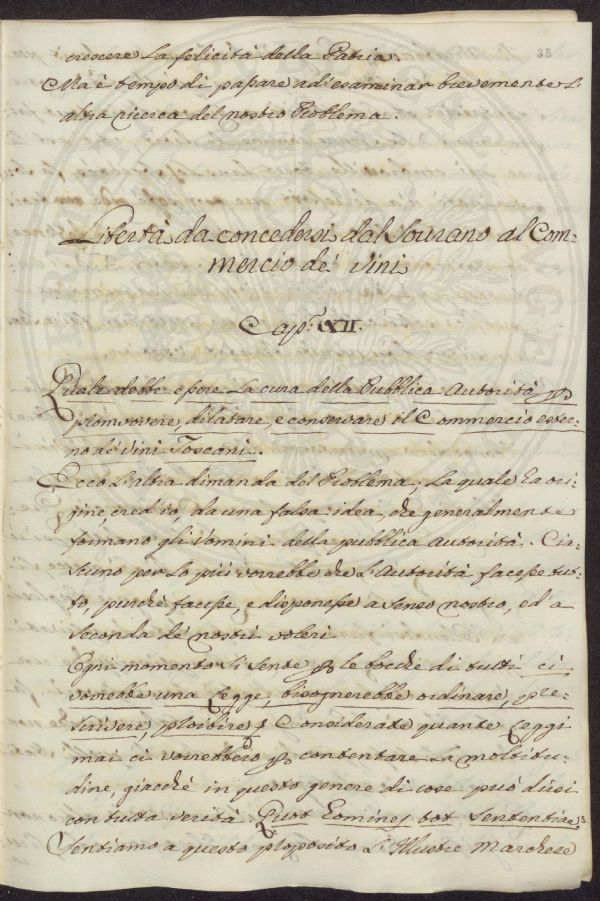 35
crescere la felicità della Patria.
Ma è tempo di passare ad esaminar brevemente l'
altra ricerca del nostro Problema.
Libertà da concedersi dal Sovrano al Com=
mercio de' Vini
Cap.° XII.
Quale debba essere la cura della Pubblica Autorità p
promuovere, dilatare, e conservare il Commercio ester=
no de' Vini Toscani.
Ecco l'altra dimanda del Problema, la quale ha ori=
gine, cred'io, da una falsa idea, che generalmente
formano gli Uomini della pubblica Autorità. Cia=
scuno per lo più vorrebbe che l'Autorità facesse tut=
to, purchè facesse, e disponesse a senso nostro, ed a
seconda de' nostri voleri
Ogni momento si sente p le bocche di tutti ci
vorrebbe una Legge, bisognerebbe ordinare, pre=
scrivere, proibire & Considerate quante Leggi
mai ci vorrebbero p contentare la moltitu=
dine, giacchè in questo genere di cose può dirsi
con tutta verità Quot Homines tot Sententiae
Sentiamo a questo proposito l'Illustre Marchese